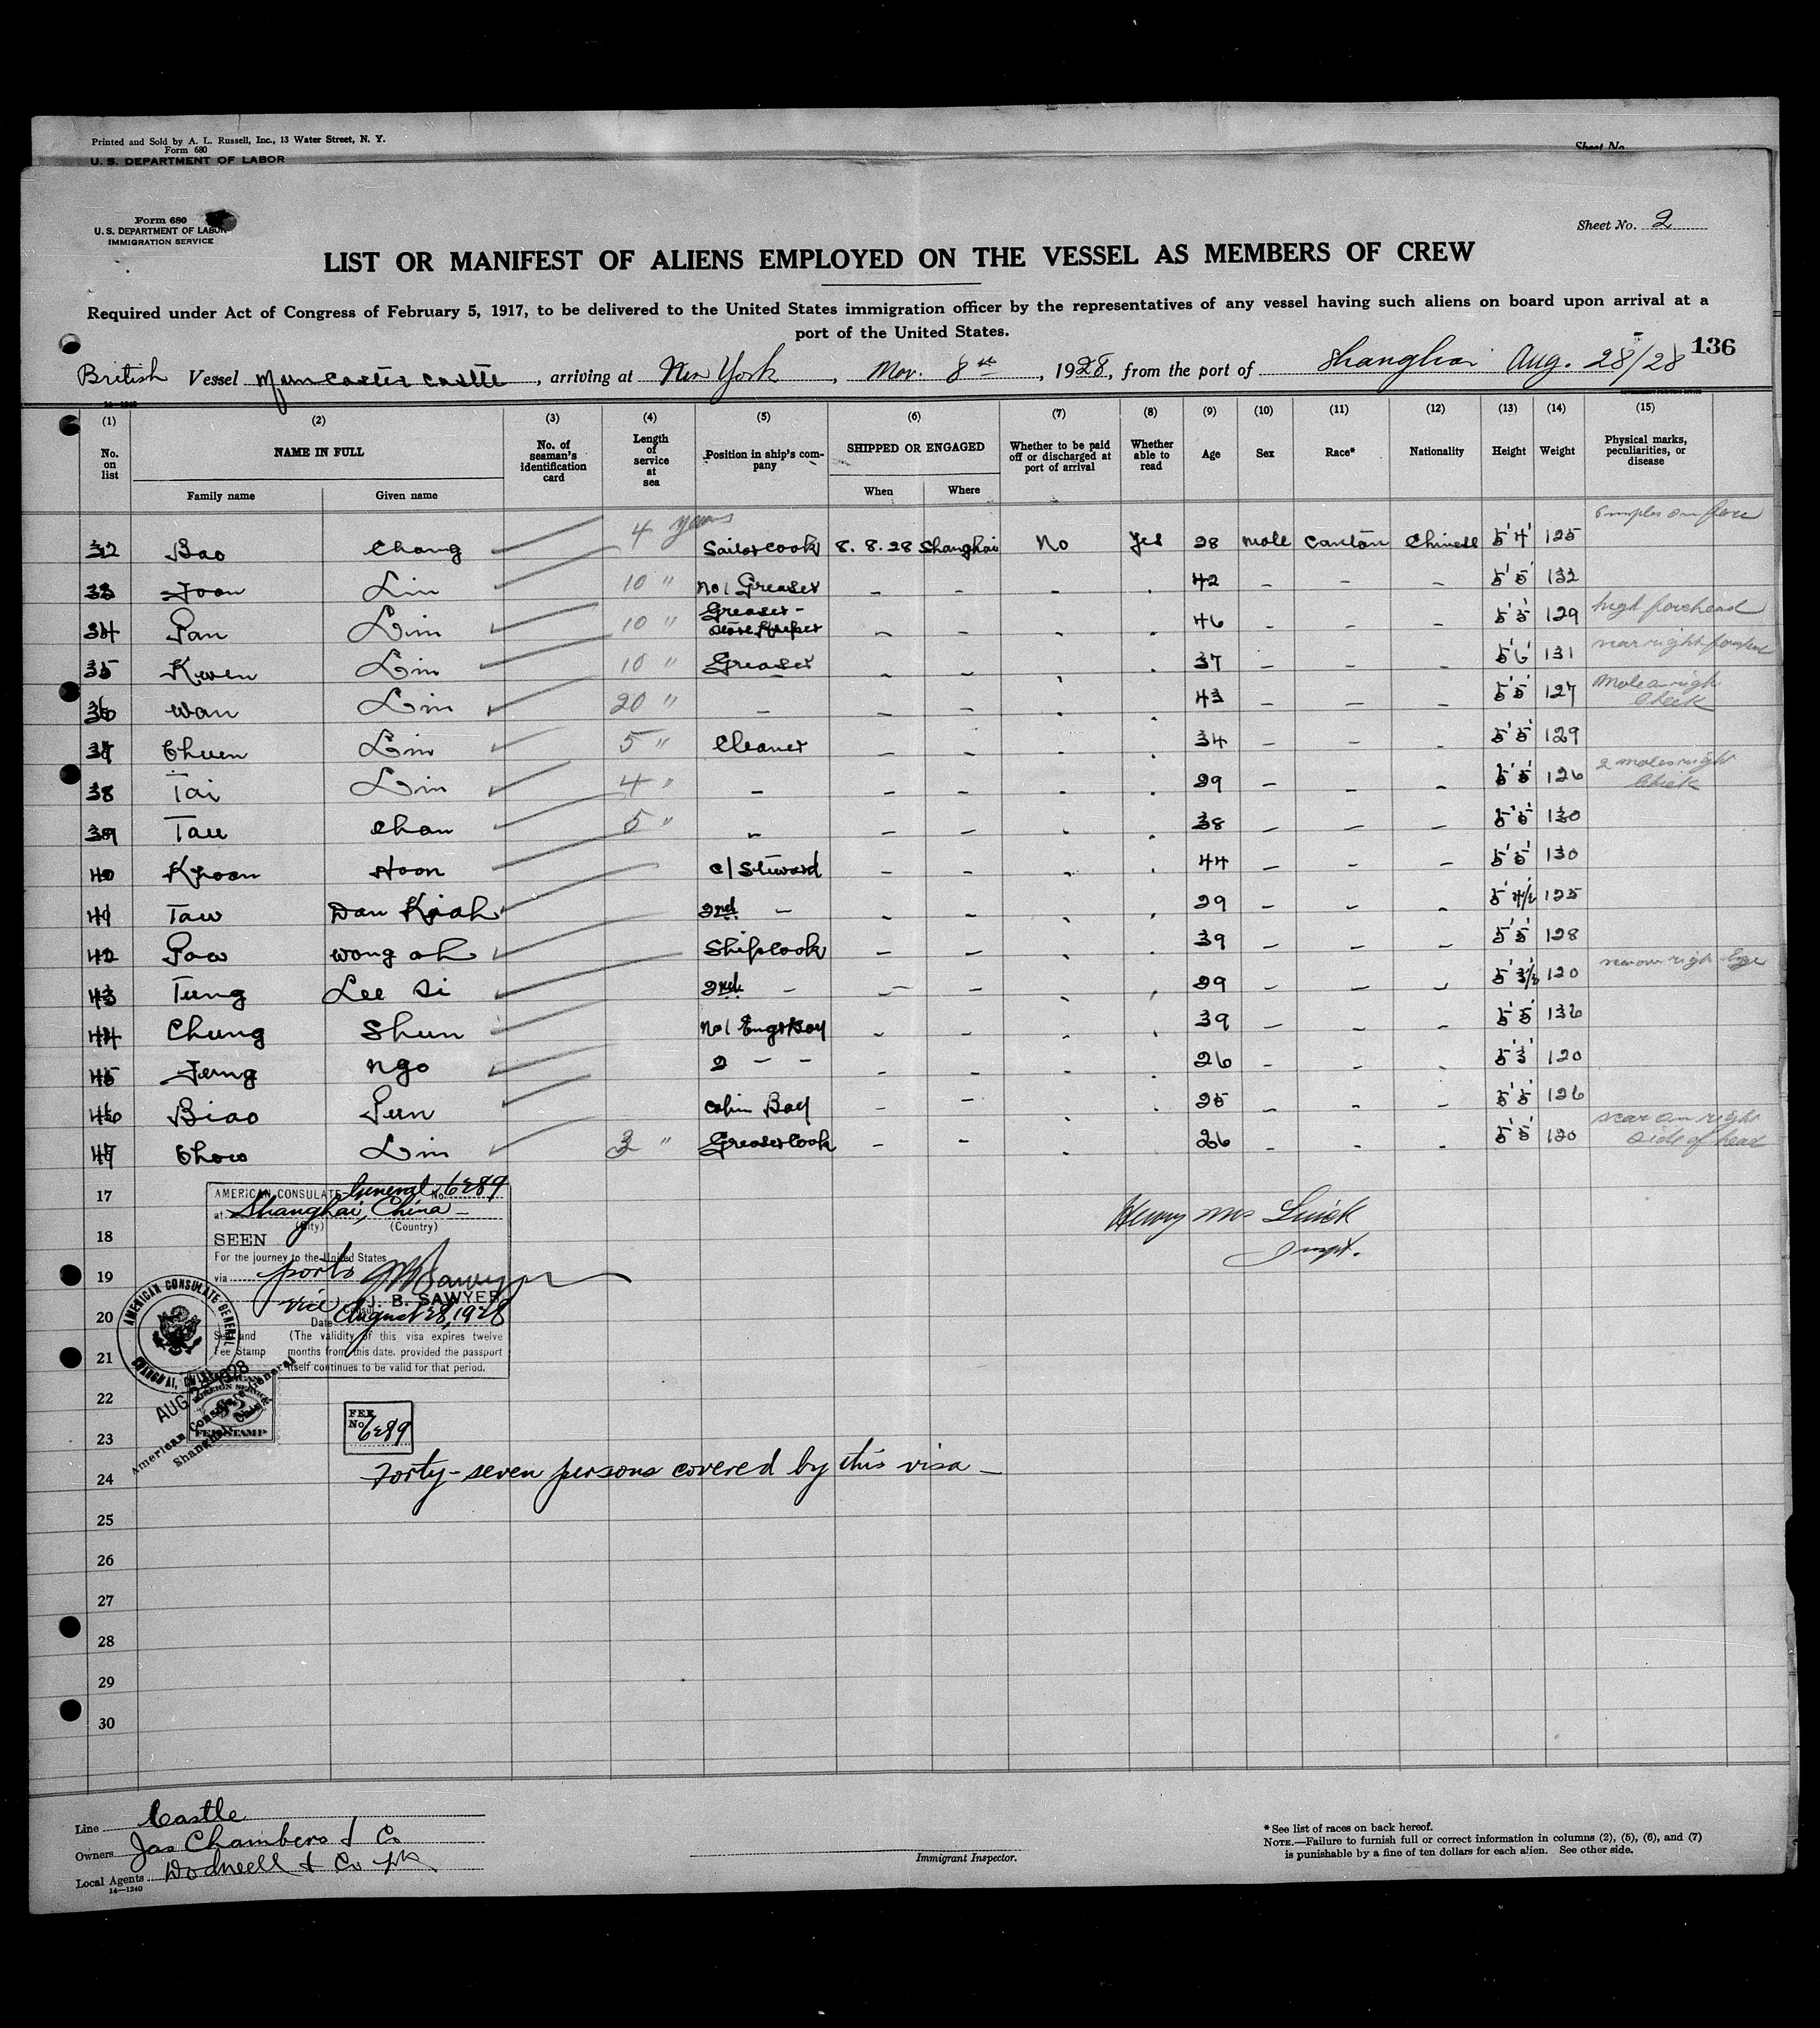 Printed and Sold by A. L. Russell, Inc., 13 Water Street, N. Y.
Form 680
U. S. DEPARTMENT OF LABOR
Sheet No.
Form 680
U. S. DEPARTMENT OF LABOR
IMMIGRATION SERVICE
Sheet No. 2
LIST OR MANIFEST OF ALIENS EMPLOYED ON THE VESSEL AS MEMBERS OF CREW
Required under Act of Congress of February 5, 1917, to be delivered to the United States immigration officer by the representatives of any vessel having such aliens on board upon arrival at a
port of the United States.
136
British Vessel Muncaster Castle, arriving at New York, Nov. 8th, 1928, from the port of Shanghai Aug. 28/28
(1) (2) (3) (4) (5) (6) (7) (8) (9) (10) (11) (12) (13) (14) (15)
No. on list NAME IN FULL No. of seaman's identification card Length of service at sea Position in ship's company SHIPPED OR ENGAGED Whether to be paid off or discharged at port of arrival Whether able to read Age Sex Race* Nationality Height Weight Physical marks, peculiarities, or disease
Family name Given name When Where
32 Bao Chang 4 years Sailor cook 8. 8. 28 Shanghai No Yes 28 male Canton Chinese 5' 4' 125 on face
33 Joon Lin 10 " No 1 Greaser - - - . 42 - - - 5' 5' 132
34 Pan Lim 10 " Greaser - Store Keeper - - - . 46 - - - 5' 5' 129 high forehead
35 Kwen Lin 10 " Greaser - - - . 37 - - - 5' 6' 131 scar right forehead
36 Wan Lim 20 " - - - - . 43 - - - 5' 5' 127 Mole right Cheek
37 Chuen Lim 5 " Cleaner - - - . 34 - - - 5' 5' 129
38 Tai Lim 4 " - - - - . 29 - - - 5' 5' 126 2 moles right Cheek
39 Tau Chan 5 " - - - - . 38 - - - 5' 5' 130
40 Kyoan Hoon c/ Steward - - - . 44 - - - 5' 5' 130
41 Taw Dan Kiah 2nd - - - - . 29 - - - 5' 4½ 125
42 Pow Wong ah Ships cook - - - . 39 - - - 5' 5' 128
43 Tung Lee Si 2nd - - - - . 29 - - - 5' 3½ 120 right Eye
44 Chung Shun No 1 Engr Boy - - - . 39 - - - 5' 5' 136
45 Jeng Ngo 2 - - - - - . 26 - - - 5' 3' 120
46 Biao Pun Cabin Boy - - - . 25 - - - 5' 5' 126
47 Chow Lim 3 " Greaser cook - - - 26 - - - 5' 5' 120 scar on right side of head
17
18
19
20
21
22
23
24
25
26
27
28
29
30
AMERICAN CONSULATE General No. 6289
at Shanghai, China
(City) (Country)
SEEN
For the journey to the United States
via ports
J. B. SAWYER
Vice Consul
Date August 28, 1928
Seal and Fee Stamp
(The validity of this visa expires twelve
months from this date, provided the passport
itself continues to be valid for that period.
AMERICAN CONSULATE GENERAL
SHANGHAI, CHINA
AUG 28 1928
American Consulate General
Shanghai, China
FEE STAMP
FEE No. 6289
Forty-seven persons covered by this visa -
Inspt.
Line Castle
Owners Jas Chambers & Co
Local Agents Dodwell & Co
14—1240
Immigrant Inspector.
* See list of races on back hereof.
NOTE.—Failure to furnish full or correct information in columns (2), (5), (6), and (7)
is punishable by a fine of ten dollars for each alien. See other side.